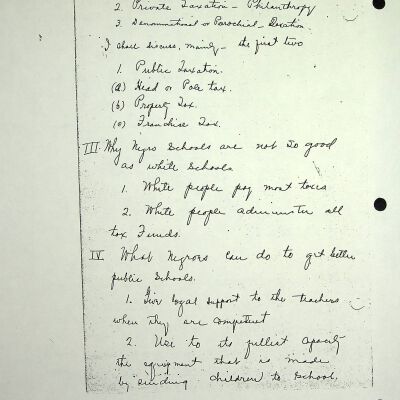 2. Private Taxation - Philanthropy
3. Denominational or Parochial - Taxation
I shall discuss, mainly - the first two
1. Public Taxation.
(a) Head or Pole tax.
(b) Property Tax.
(c) Franchise Tax.
III. Why Negro Schools are not so good
as white Schools.
1. White people pay most taxes
2. White people administer all
tax Funds.
IV What Negroes can do to get better
public Schools.
1. Give loyal support to the teachers
when they are competent
2. Use to its fullest capacity
the equipment that is made
by sending children to School.